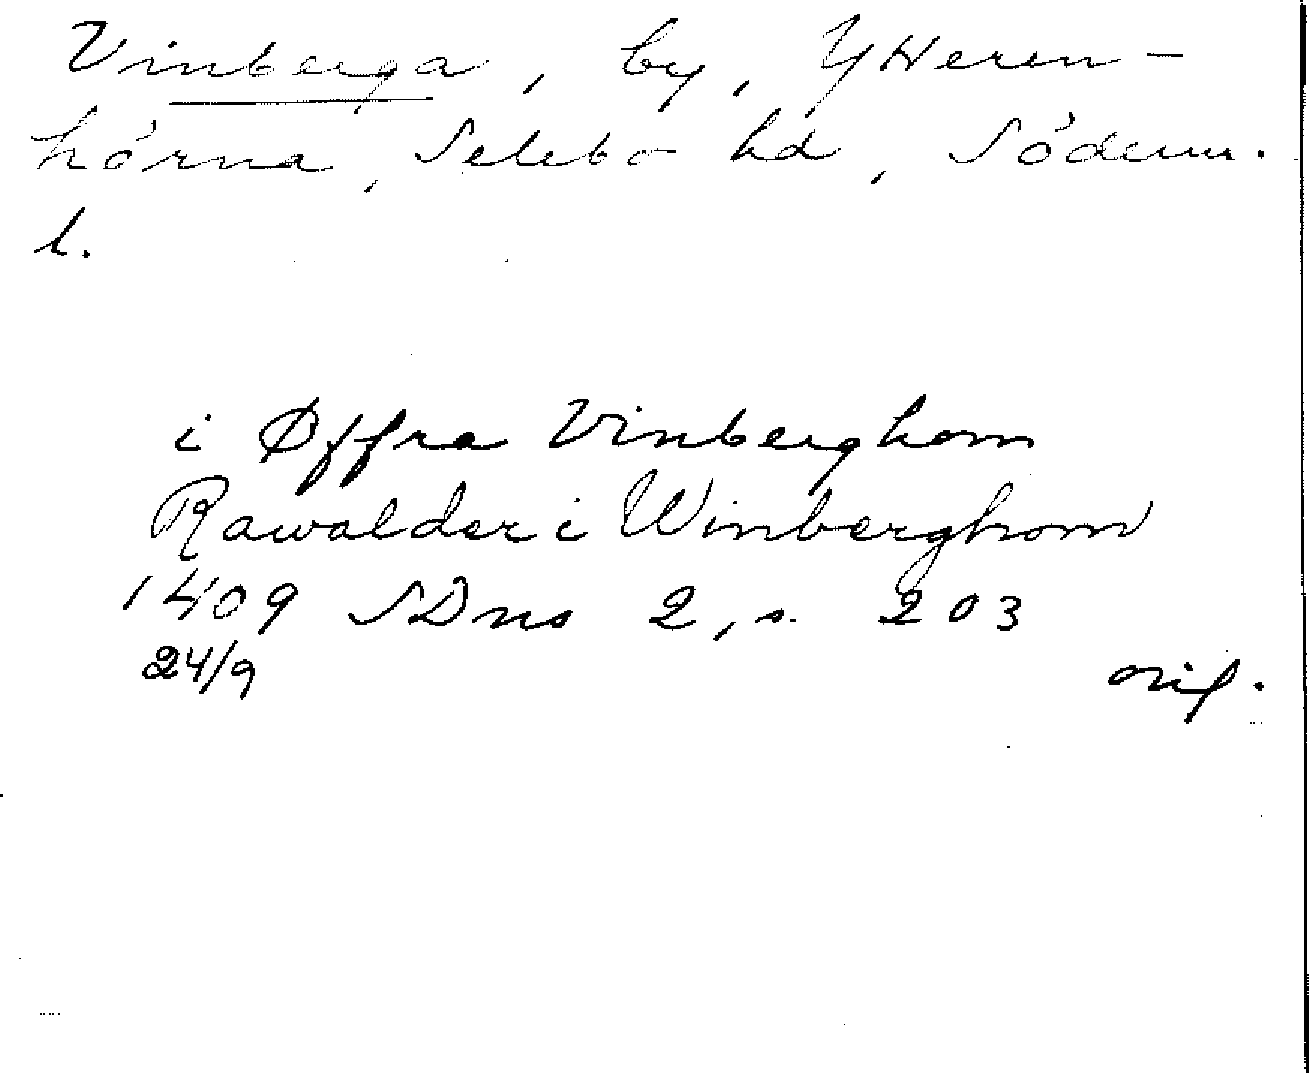 Vinberga, by, Ytteren-
hörna, Selebo hd, Söderm.
l.
i Øffra Vinberghom
Rawalder i Winberghom
1409 SDns 2, s. 203
24/9 orig.